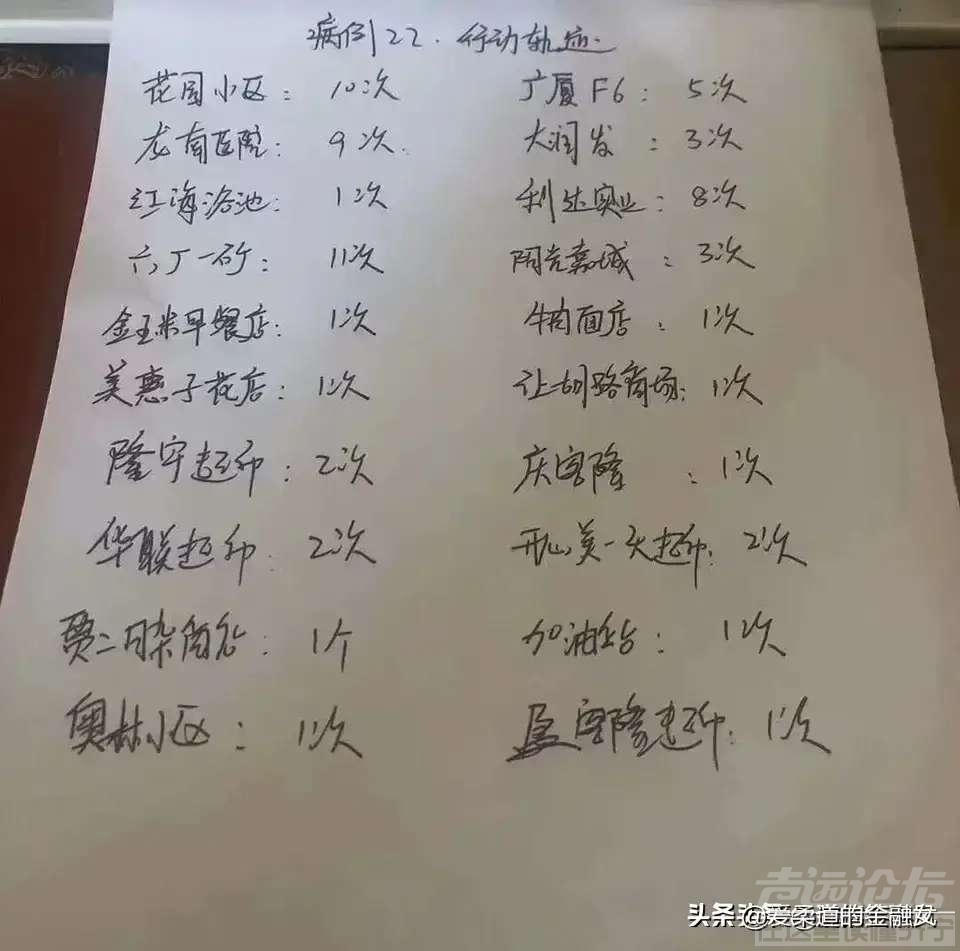 病例22.行动轨迹
花园小区: 10次 广厦F6: 5次
龙南医院: 9次. 大润发: 3次
红海浴池: 1次 利达实业: 8次
六厂一矿: 11次 阳光嘉城: 3次
金玉米早餐店: 1次 牛肉面店: 1次
美惠子花店: 1次 让胡路商场: 1次
隆宇超市: 2次 庆客隆: 1次
华联超市: 2次 开心美一天超市: 2次
贾二日杂商店: 1个 加油站: 1次
奥林小区: 1次 客隆超市: 1次
头条 @爱柔道的金融女